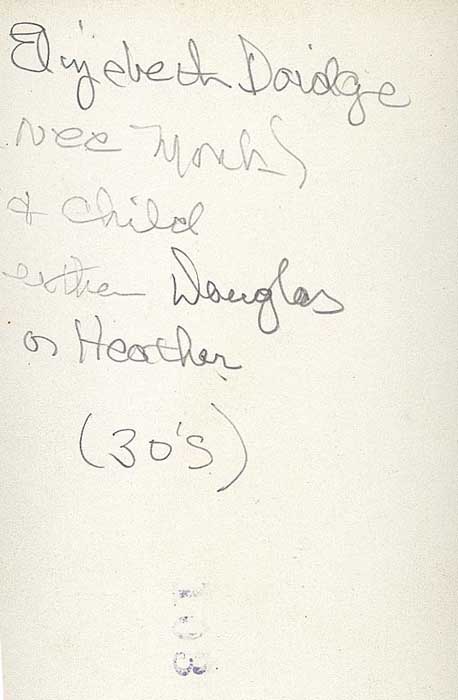 Elizebeth Doidge
nee Monks
& child
either Douglas
or Heather
(30's)
103